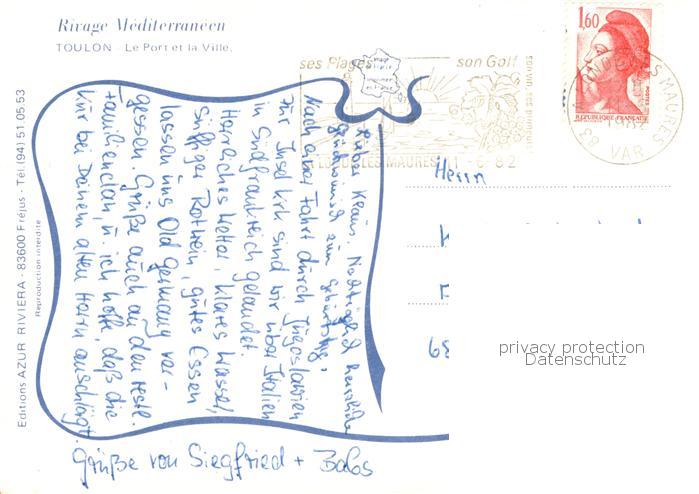 Rivage Méditerranéen
TOULON - Le Port et la Ville.
Editions AZUR RIVIERA - 83600 Fréjus - Tél. (94) 51.05.53
Reproduction interdite
ses Plages son Golf
son vin, ses
LES MAURES 11 - 6 82
1,60
REPUBLIQUE FRANÇAISE
POSTES
MAURES
83 VAR
Lieber Klaus. Nachträglich herzliche
Glückwünsche zum Geburtstag.
Nach einer Fahrt durch Jugoslawien
zur Insel Krk sind wir über Italien
in Südfrankreich gelandet.
Herrliches Wetter, klares Wasser,
süffiger Rotwein, gutes Essen
lassen uns Old Germany ver-
gessen. Grüße auch an den restl.
Familienclan, u. ich hoffe, daß die
Kur bei Deinem alten Herrn anschlägt.
Grüße von Siegfried +
Herrn
69
privacy protection
Datenschutz